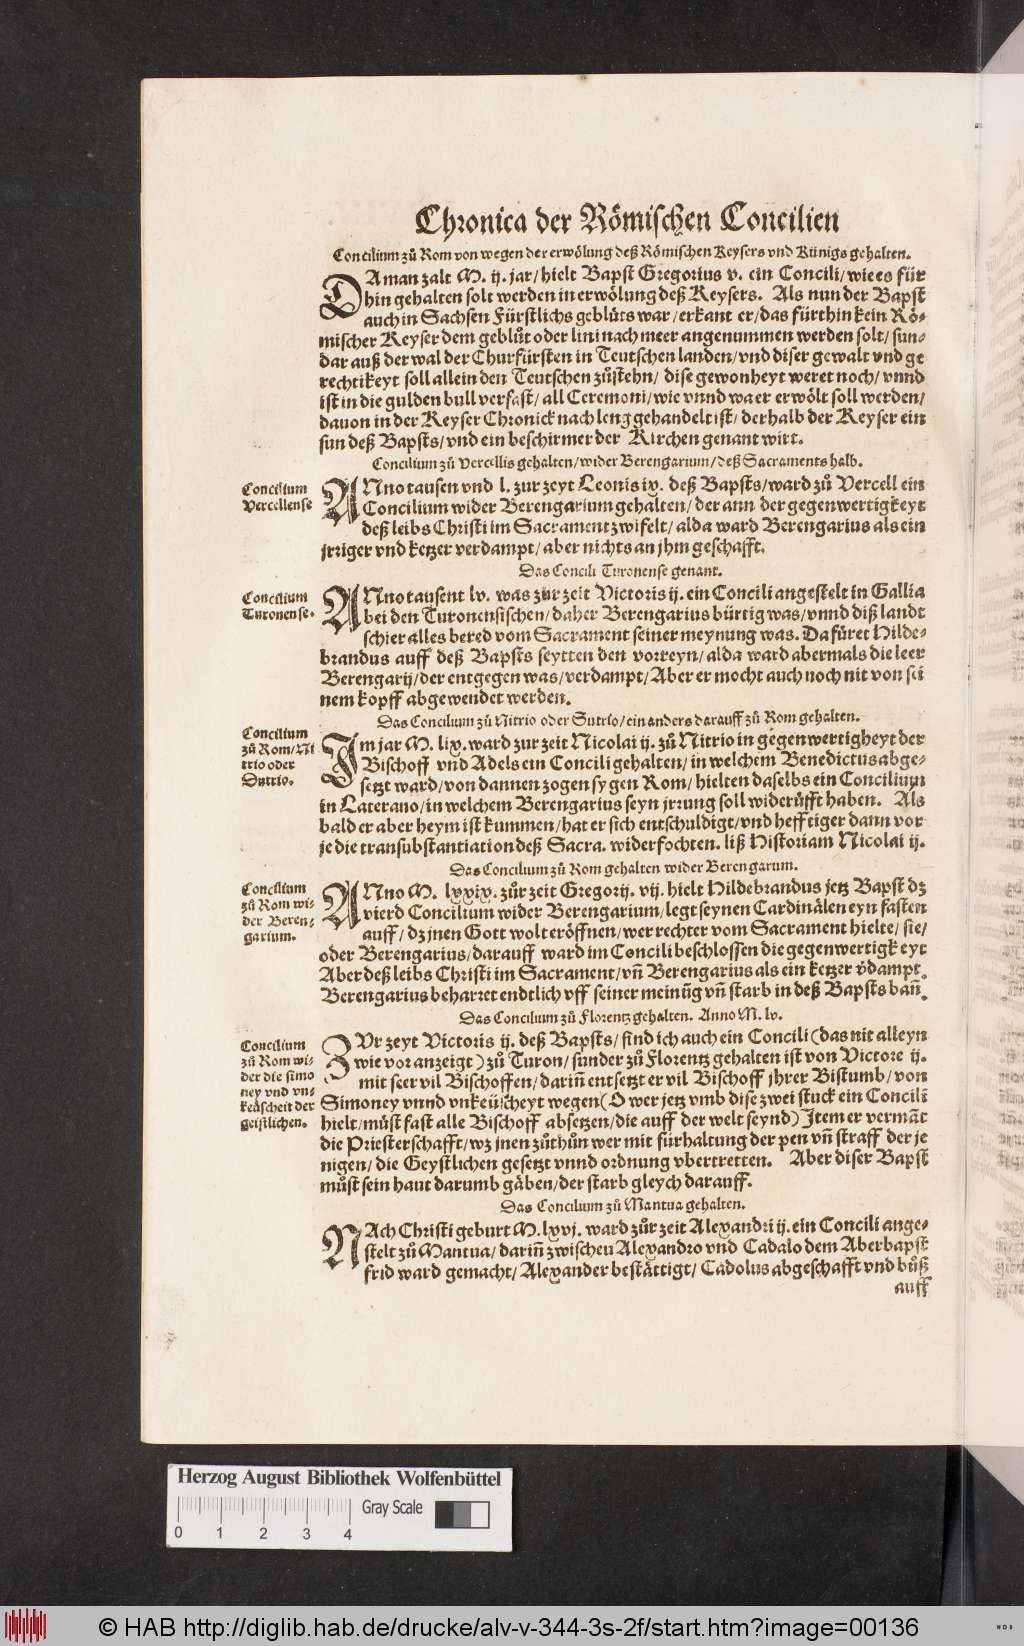 Chronica der Römischen Concilien
Concilium zů Rom von wegen der erwölung deß Römischen Keysers vnd Künigs gehalten.
DA man zalt M. ij. jar/ hielt Bapst Gregorius v. ein Concili/ wie es für
hin gehalten solt werden in erwölung deß Keysers. Als nun der Bapst
auch in Sachsen Fürstlichs geblůts war/ erkant er/ das fürthin kein Rö-
mischer Keyser dem geblůt oder lini nach meer angenummen werden solt/ sun-
dar auß der wal der Churfürsten in Teutschen landen/ vnd diser gewalt vnd ge
rechtikeyt soll allein den Teutschen zůstehn/ dise gewonheyt weret noch/ vnnd
ist in die gulden bull verfast/ all Ceremoni/ wie vnnd wa er erwölt soll werden/
dauon in der Keyser Chronick nach leng gehandelt ist/ derhalb der Keyser ein
sun deß Bapsts/ vnd ein beschirmer der Kirchen genant wirt.
Concilium zů Vercellis gehalten/ wider Berengarium/ deß Sacraments halb.
Concilium
Vercellense
ANno tausen vnd l. zur zeyt Leonis ix. deß Bapsts/ ward zů Vercell ein
Concilium wider Berengarium gehalten/ der ann der gegenwertigkeyt
deß leibs Christi im Sacrament zwifelt/ alda ward Berengarius als ein
jrriger vnd ketzer verdampt/ aber nichts an jhm geschafft.
Das Concili Turonense genant.
Concilium
Turonense.
ANno tausent lv. was zur zeit Victoris ij. ein Concili angestelt in Gallia
bei den Turonensischen/ daher Berengarius bürtig was/ vnnd diß landt
schier alles bered vom Sacrament seiner meynung was. Da füret Hilde-
brandus auff deß Bapsts seytten den vorreyn/ alda ward abermals die leer
Berengarij/ der entgegen was/ verdampt/ Aber er mocht auch noch nit von sei
nem kopff abgewendet werden.
Das Concilium zů Nitrio oder Sutrio/ ein anders darauff zů Rom gehalten.
Concilium
zů Rom/ Ni
trio oder
Dutrio.
Im jar M. lix. ward zur zeit Nicolai ij. zů Nitrio in gegenwertigheyt der
Bischoff vnd Adels ein Concili gehalten/ in welchem Benedictus abge-
setzt ward/ von dannen zogen sy gen Rom/ hielten daselbs ein Concilium
in Laterano/ in welchem Berengarius seyn jrrung soll widerüfft haben. Als
bald er aber heym ist kummen/ hat er sich entschuldigt/ vnd hefftiger dann vor
je die transubstantiation deß Sacra. widerfochten. liß Historiam Nicolai ij.
Das Concilium zů Rom gehalten wider Berengarum.
Concilium
zů Rom wi-
der Beren-
garium.
ANno M. lxxix. zůr zeit Gregorij. vij. hielt Hildebrandus jetz Bapst dz
vierd Concilium wider Berengarium/ legt seynen Cardinälen eyn fasten
auff/ dz jnen Gott wolt eröffnen/ wer rechter vom Sacrament hielte/ sie/
oder Berengarius/ darauff ward im Concili beschlossen die gegenwertigkeyt
Aber deß leibs Christi im Sacrament/ vñ Berengarius als ein ketzer v̄dampt.
Berengarius beharret endtlich vff seiner meinūg vñ starb in deß Bapsts bañ.
Das Concilium zů Florentz gehalten. Anno M. lv.
Concilium
zů Rom wi-
der die simo
ney vnd vn-
keüscheit der
geistlichen.
ZVr zeyt Victoris ij. deß Bapsts/ find ich auch ein Concili (das nit alleyn
wie vor anzeigt) zů Turon/ sunder zů Florentz gehalten ist von Victore ij.
mit seer vil Bischoffen/ dariñ entsetzt er vil Bischoff jhrer Bistumb/ von
Simoney vnnd vnkeüscheyt wegen (O wer jetz vmb dise zwei stuck ein Concili
hielt/ můst fast alle Bischoff absetzen/ die auff der welt seynd) Item er vermāt
die Priesterschafft/ wz jnen zůthůn wer mit fürhaltung der pen vñ straff der je
nigen/ die Geystlichen gesetzt vnnd ordnung vbertretten. Aber diser Bapst
můst sein haut darumb gäben/ der starb gleych darauff.
Das Concilium zů Mantua gehalten.
NAch Christi geburt M. lxvj. ward zůr zeit Alexandri ij. ein Concili ange-
stelt zů Mantua/ dariñ zwischen Alexandro vnd Cadalo dem Aberbapst
frid ward gemacht/ Alexander bestättigt/ Cadolus abgeschafft vnd bůß
auff
Herzog August Bibliothek Wolfenbüttel
Gray Scale
0 1 2 3 4
© HAB http://diglib.hab.de/drucke/alv-v-344-3s-2f/start.htm?image=00136